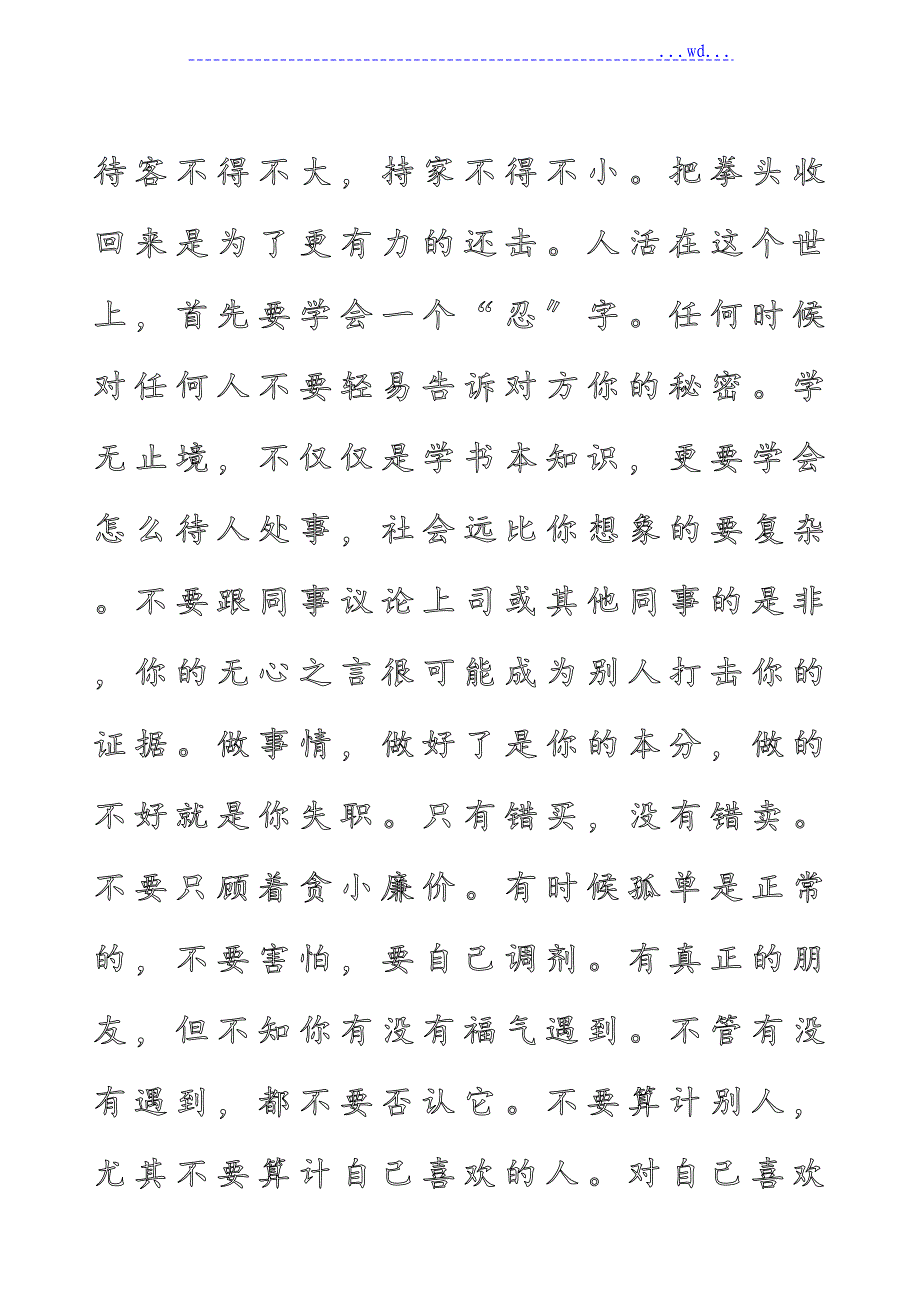 ...wd...
待客不得不大，持家不得不小。把拳头收
回来是为了更有力的还击。人活在这个世
上，首先要学会一个“忍”字。任何时候
对任何人不要轻易告诉对方你的秘密。学
无止境，不仅仅是学书本知识，更要学会
怎么待人处事，社会远比你想象的要复杂
。不要跟同事议论上司或其他同事的是非
，你的无心之言很可能成为别人打击你的
证据。做事情，做好了是你的本分，做的
不好就是你失职。只有错买，没有错卖。
不要只顾着贪小廉价。有时候孤单是正常
的，不要害怕，要自己调剂。有真正的朋
友，但不知你有没有福气遇到。不管有没
有遇到，都不要否认它。不要算计别人，
尤其不要算计自己喜欢的人。对自己喜欢